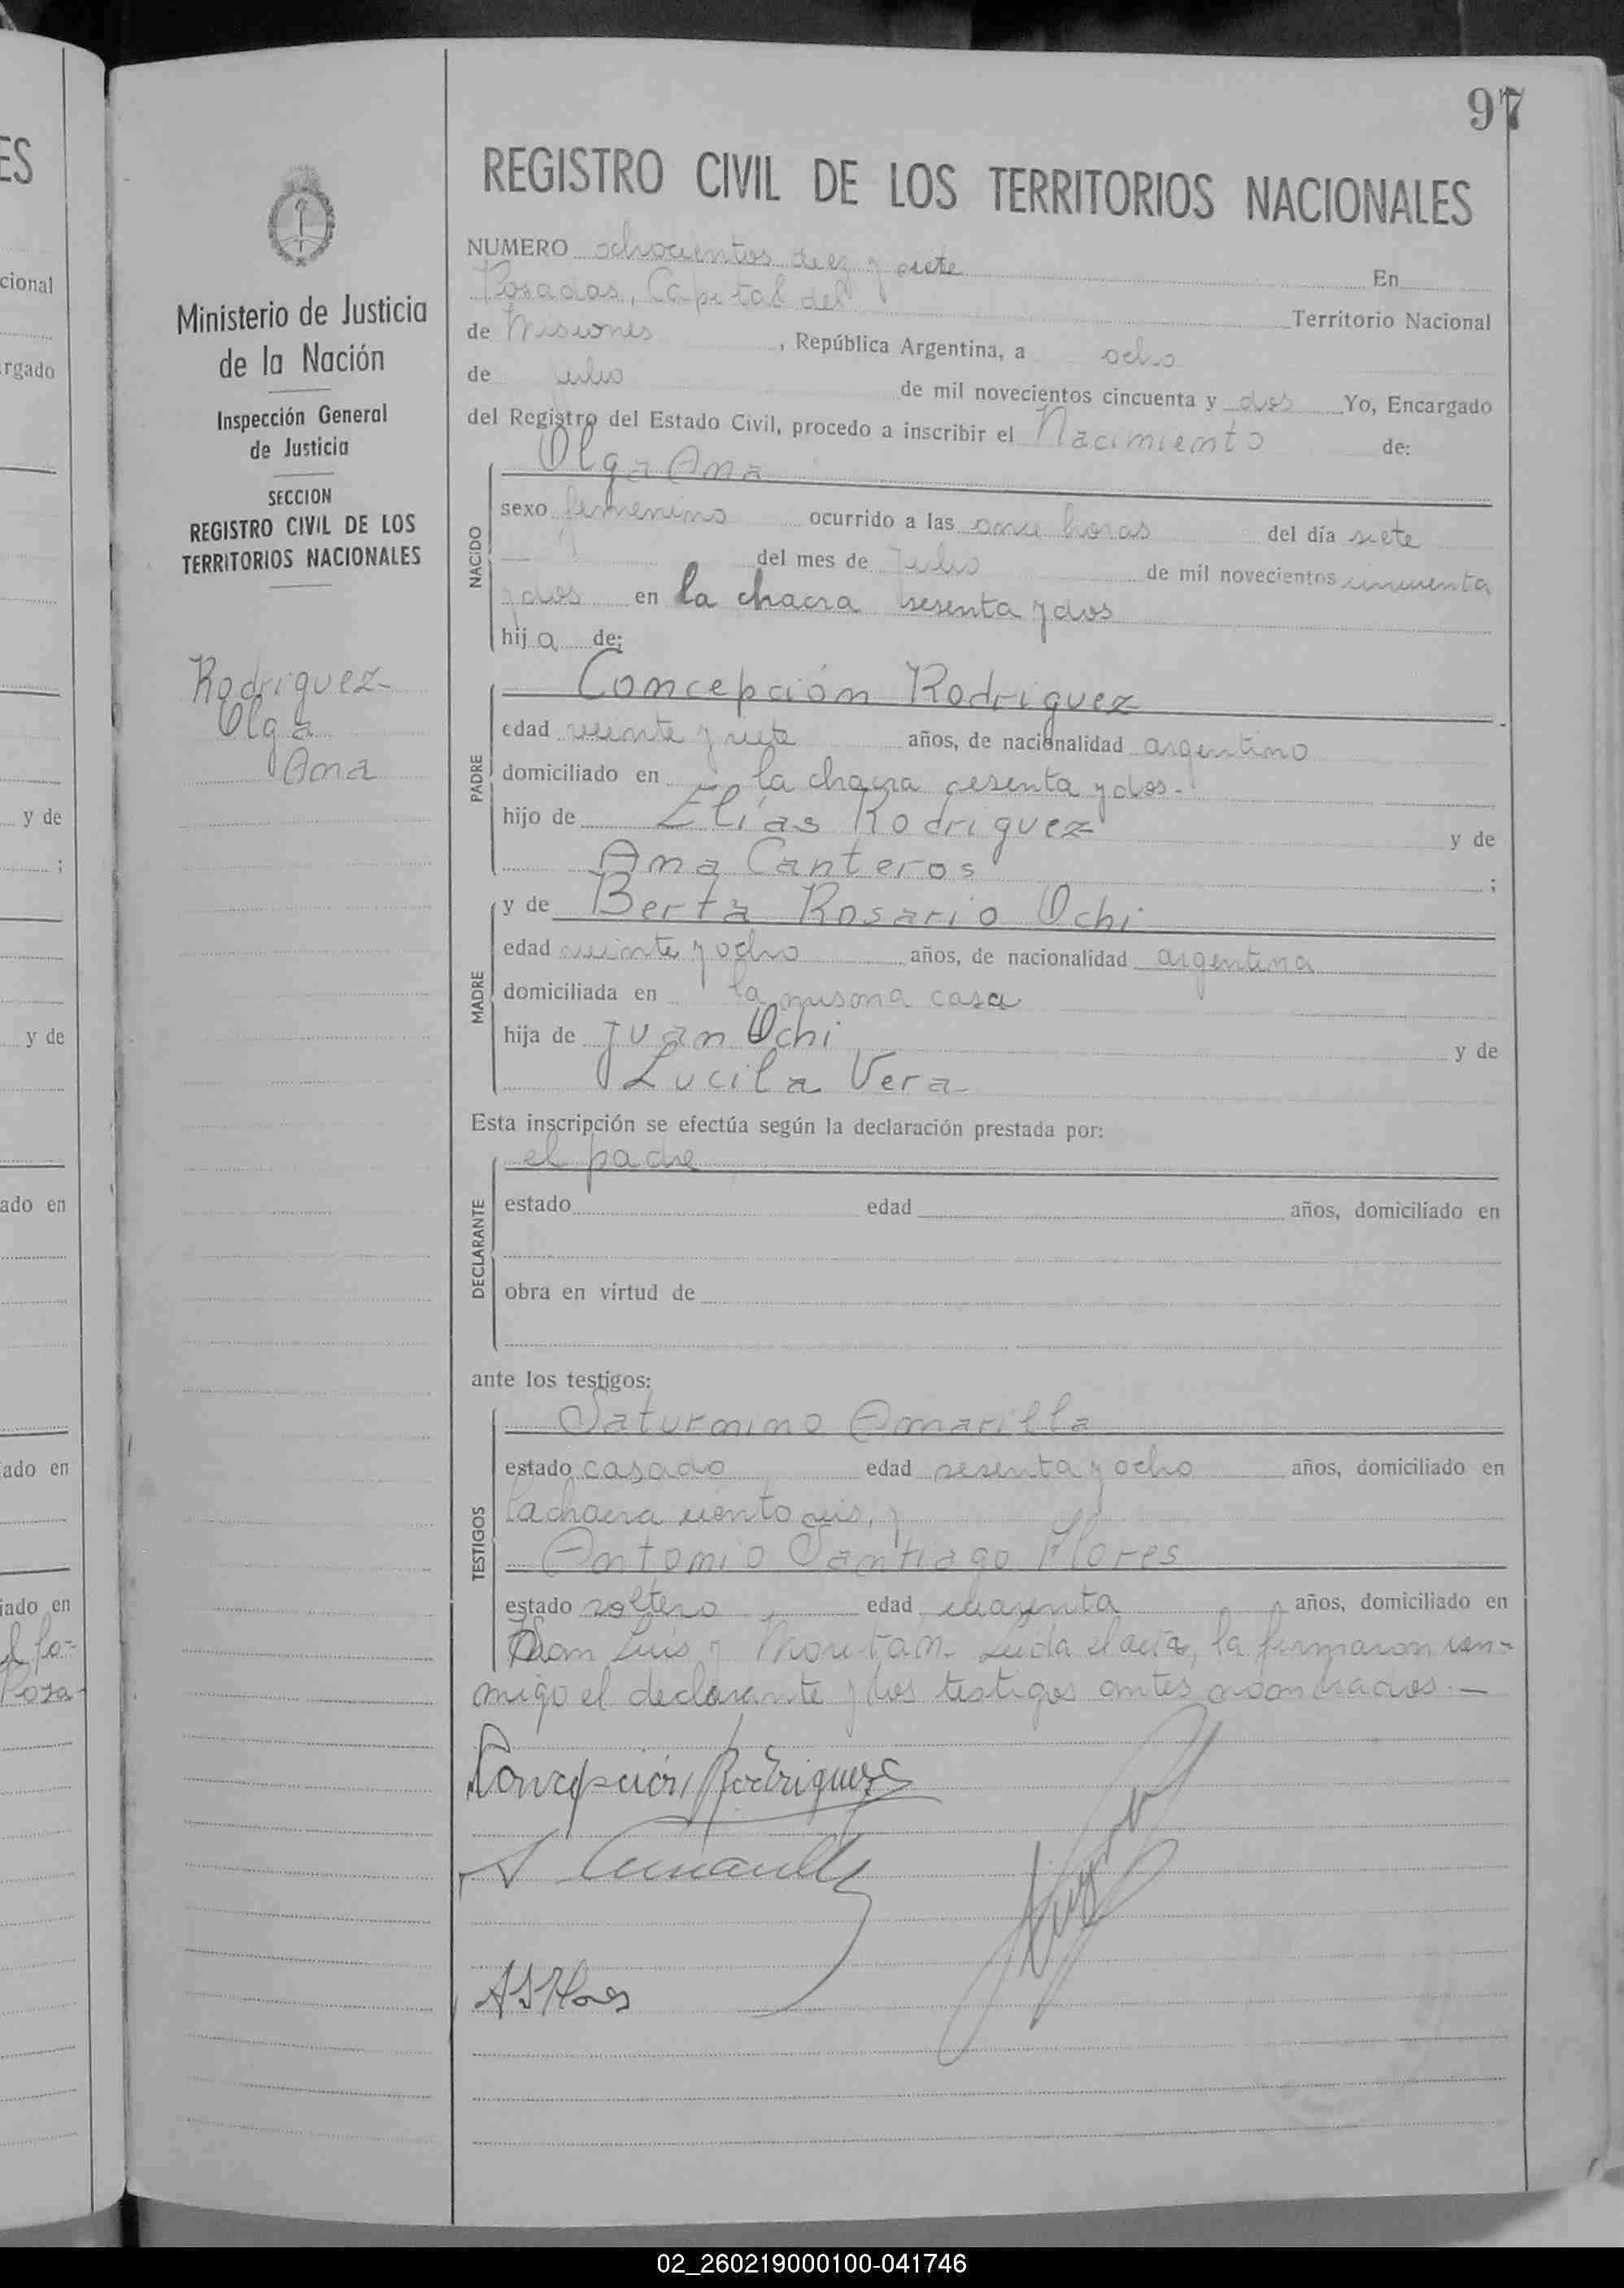 97
REGISTRO CIVIL DE LOS TERRITORIOS NACIONALES
NUMERO ochocientos diez y siete En
Posadas, Capital del Territorio Nacional
de Misiones, República Argentina, a ocho
de julio de mil novecientos cincuenta y dos Yo, Encargado
del Registro del Estado Civil, procedo a inscribir el Nacimiento de:
Olga Ana
NACIDO
sexo femenino ocurrido a las once horas del día siete
del mes de Julio de mil novecientos cincuenta
y dos en la chacra sesenta y dos
hija de:
Concepción Rodriguez
PADRE
edad veinte y siete años, de nacionalidad argentino
domiciliado en la chacra sesenta y dos.-
hijo de Elías Rodriguez y de
Ana Canteros ;
y de Berta Rosario Ochi
MADRE
edad veinte y ocho años, de nacionalidad argentina
domiciliada en la misma casa
hija de Juan Ochi y de
Lucila Vera
Esta inscripción se efectúa según la declaración prestada por:
el padre
DECLARANTE
estado edad años, domiciliado en
obra en virtud de
ante los testigos:
Saturnino Amarilla
TESTIGOS
estado casado edad sesenta y ocho años, domiciliado en
la chacra ciento seis, y
Antonio Santiago Flores
estado soltero edad cuarenta años, domiciliado en
San Luis y Leida el acta, la firmaron con-
migo el declarante y los testigos antes nombrados.—
Concepción Rodriguez
A S Flores
Ministerio de Justicia
de la Nación
Inspección General
de Justicia
SECCION
REGISTRO CIVIL DE LOS
TERRITORIOS NACIONALES
Rodriguez-
Olga
Ana
ES
cional
rgado
y de
;
y de
ado en
ado en
iado en
02_260219000100-041746